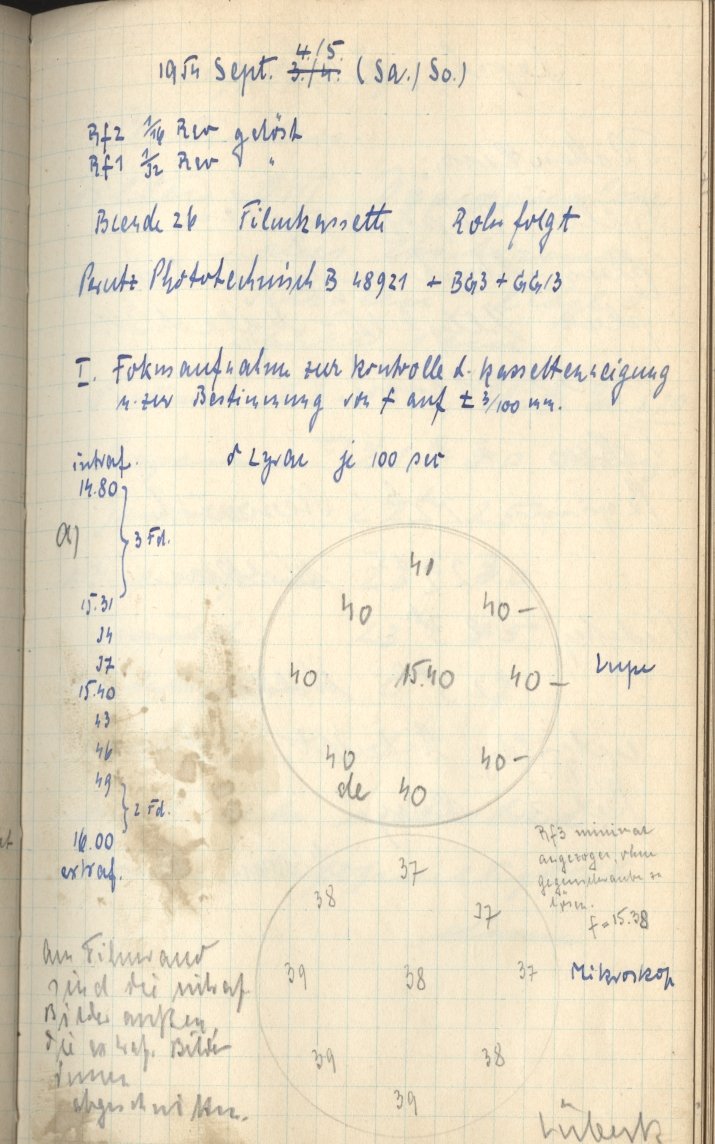 1954 Sept. 4./5. (Sa./So.)
3./4.
Rf2 1/16 Rev gelöst
Rf1 1/32 Rev "
Blende 26 Filmkassette Rohr folgt
Perutz Phototechnisch B 48921 + BG3 + GG13
I. Fokusaufnahme zur Kontrolle d. Kassettenneigung
u. zur Bestimmung von f auf ± 3/100 mm.
intraf. δ Lyrae je 100 sec
14.80
a) } 3 Fd.
15.31
34
37
15.40
43
46
49
} 2 Fd.
16.00
extraf.
41
40 40 –
40 15.40 40 – Lupe
40 40 –
de 40
Rf3 minimal
angezogen, ohne
Gegenschraube zu
lösen.
f = 15.38
37
38 37
39 38 37 Mikroskop
39 38
39
Am Filmrand
sind die intraf
Bilder außen,
die extraf. Bilder
innen
abgeschnitten.